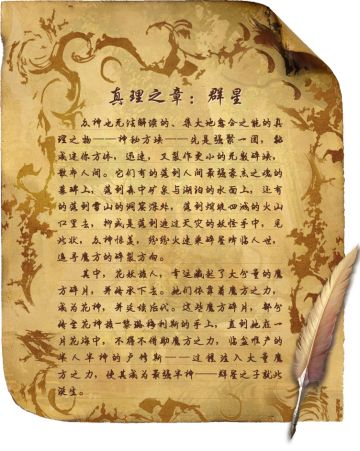 真理之章：群星
众神也无法解读的、集大地愈合之能的真
理之物——神秘方块——先是强聚一团，黏
成迷你方体，迅速，又裂作更小的无数碎块，
散布人间。它们有的落到人间最强豪杰之魂的
墓碑上，落到森中矿泉与湖泊的水面上，还有
的落到雪山的洞窟深处，落到绽破四溅的火山
口里去，抑或是落到逃过天灾的妖怪手中，见
此状，众神惊羞，纷纷火速乘碎星阵临人世，
追寻魔方的碎裂方向。
其中，花妖族人，幸运藏起了大分量的魔
方碎片，并传承下去。她们依靠着魔方之力，
成为花神，并延续后代。这些魔方碎片，部分
传至花神族·黎路梅利斯的手上，直到她在一
片花海中，不得不借助魔方之力，临盆难产的
半人半神的卢修斯——过程注入大量魔
方之力，使其成为最强半神——群星之子就此
诞生。